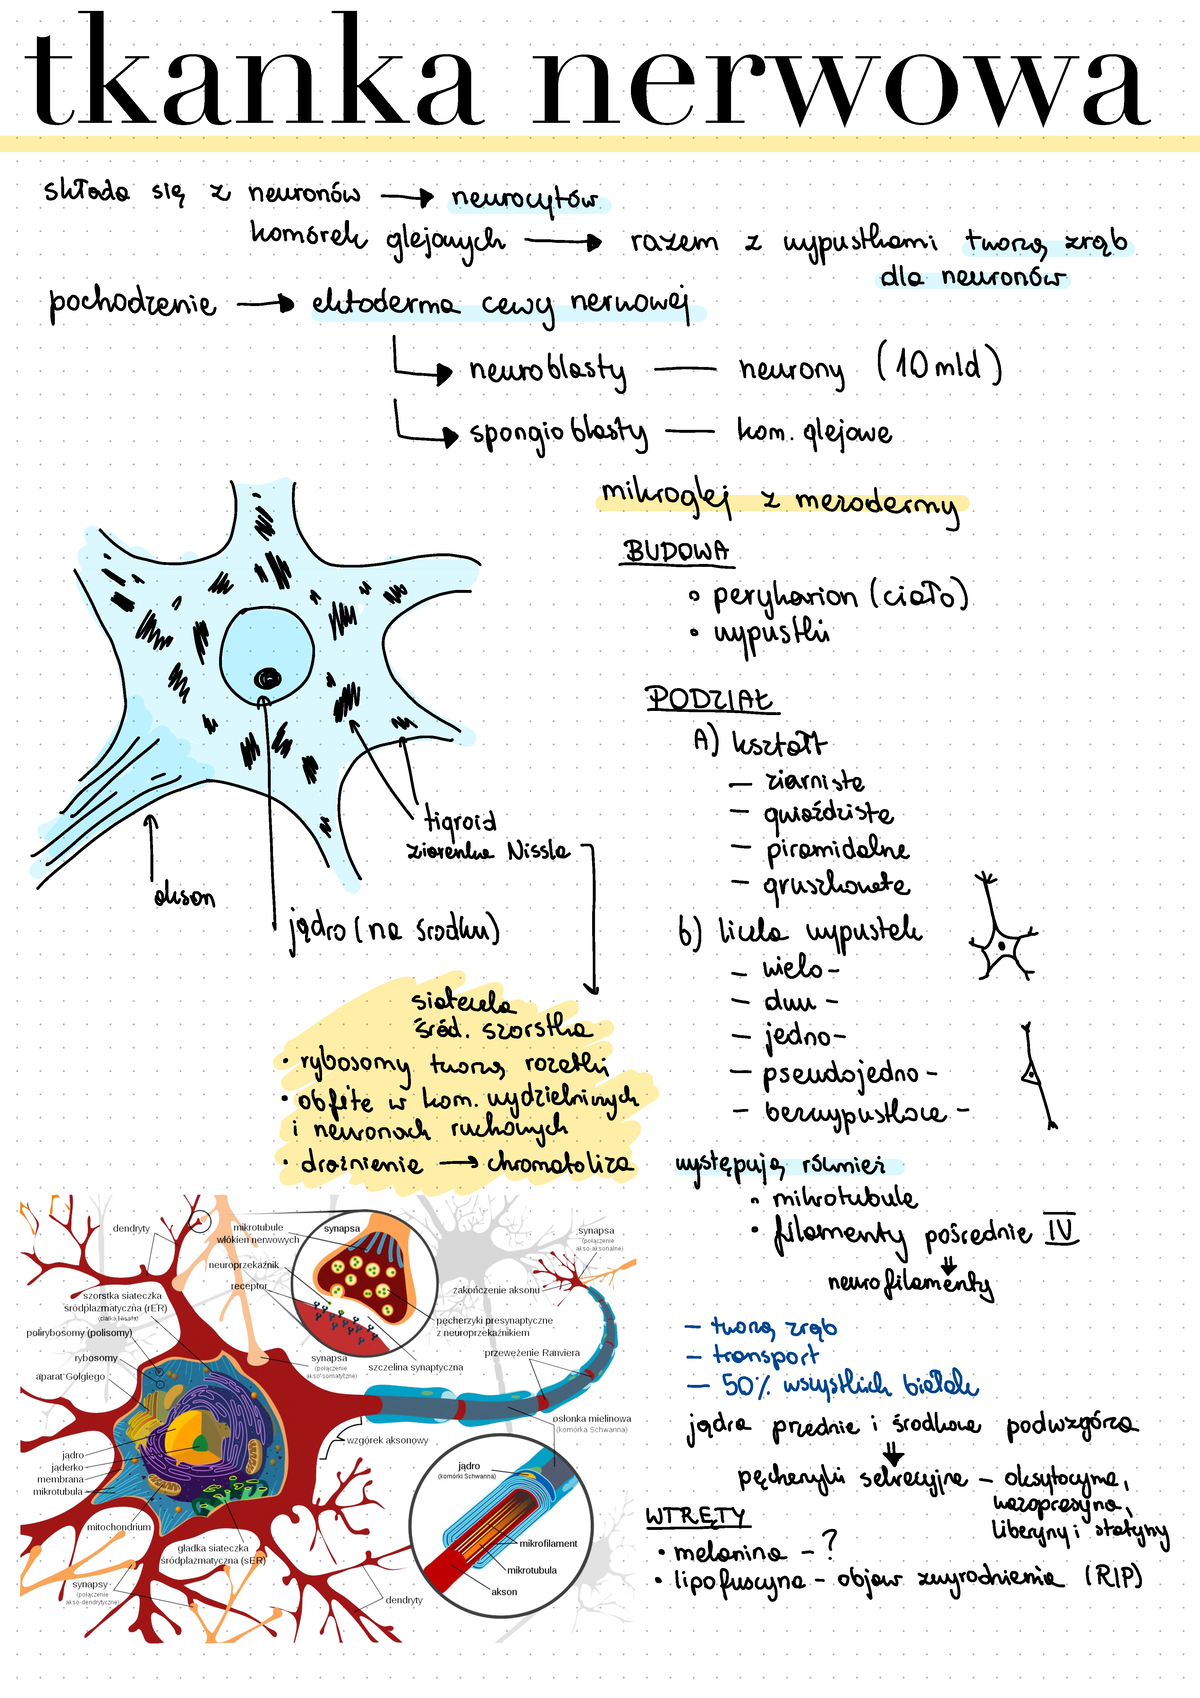 tkanka nerwowa
składa się z neuronów → neurocytów
komórek glejowych → razem z wypustkami tworzą zrąb
dla neuronów
pochodzenie → ektoderma cewy nerwowej
neuroblasty — neurony (10 mld)
spongioblasty — kom. glejowe
mikroglej z mezodermy
BUDOWA
• perykarion (ciało)
• wypustki
PODZIAŁ
A) kształt
- ziarniste
- gwiaździste
- piramidalne
- gruszkowate
b) liczba wypustek
- wielo-
- dwu-
- jedno-
- pseudojedno-
- bezwypustkowe-
tigroid
ziarenka Nissla
akson
jądro (na środku)
siateczka
śród. szorstka
• rybosomy tworzą rozetki
• obfite w kom. wydzielniczych
i neuronach ruchowych
• drażnienie → chromatoliza
występują również
• mikrotubule
• filamenty pośrednie IV
⇓
neurofilamenty
- tworzą zrąb
- transport
- 50% wszystkich białek
jądra przednie i środkowe podwzgórza
⇓
pęcherzyki sekrecyjne - oksytocyna,
wazopresyna,
liberyny i statyny
WTRĘTY
• melanina - ?
• lipofuscyna - objaw zwyrodnienia (RIP)
dendryty
mikrotubule
włókien nerwowych
synapsa
neuroprzekaźnik
receptor
synapsa
(połączenie
akso-aksonalne)
zakończenie aksonu
szorstka siateczka
śródplazmatyczna (rER)
(ciałka tigroidu)
polirybosomy (polisomy)
rybosomy
aparat Golgiego
pęcherzyki presynaptyczne
z neuroprzekaźnikiem
synapsa
(połączenie
akso-somatyczne)
szczelina synaptyczna
przewężenie Ranviera
osłonka mielinowa
(komórka Schwanna)
wzgórek aksonowy
jądro
jąderko
membrana
mikrotubula
mitochondrium
gładka siateczka
śródplazmatyczna (sER)
synapsy
(połączenie
akso-dendrytyczne)
dendryty
jądro
(komórki Schwanna)
mikrofilament
mikrotubula
akson